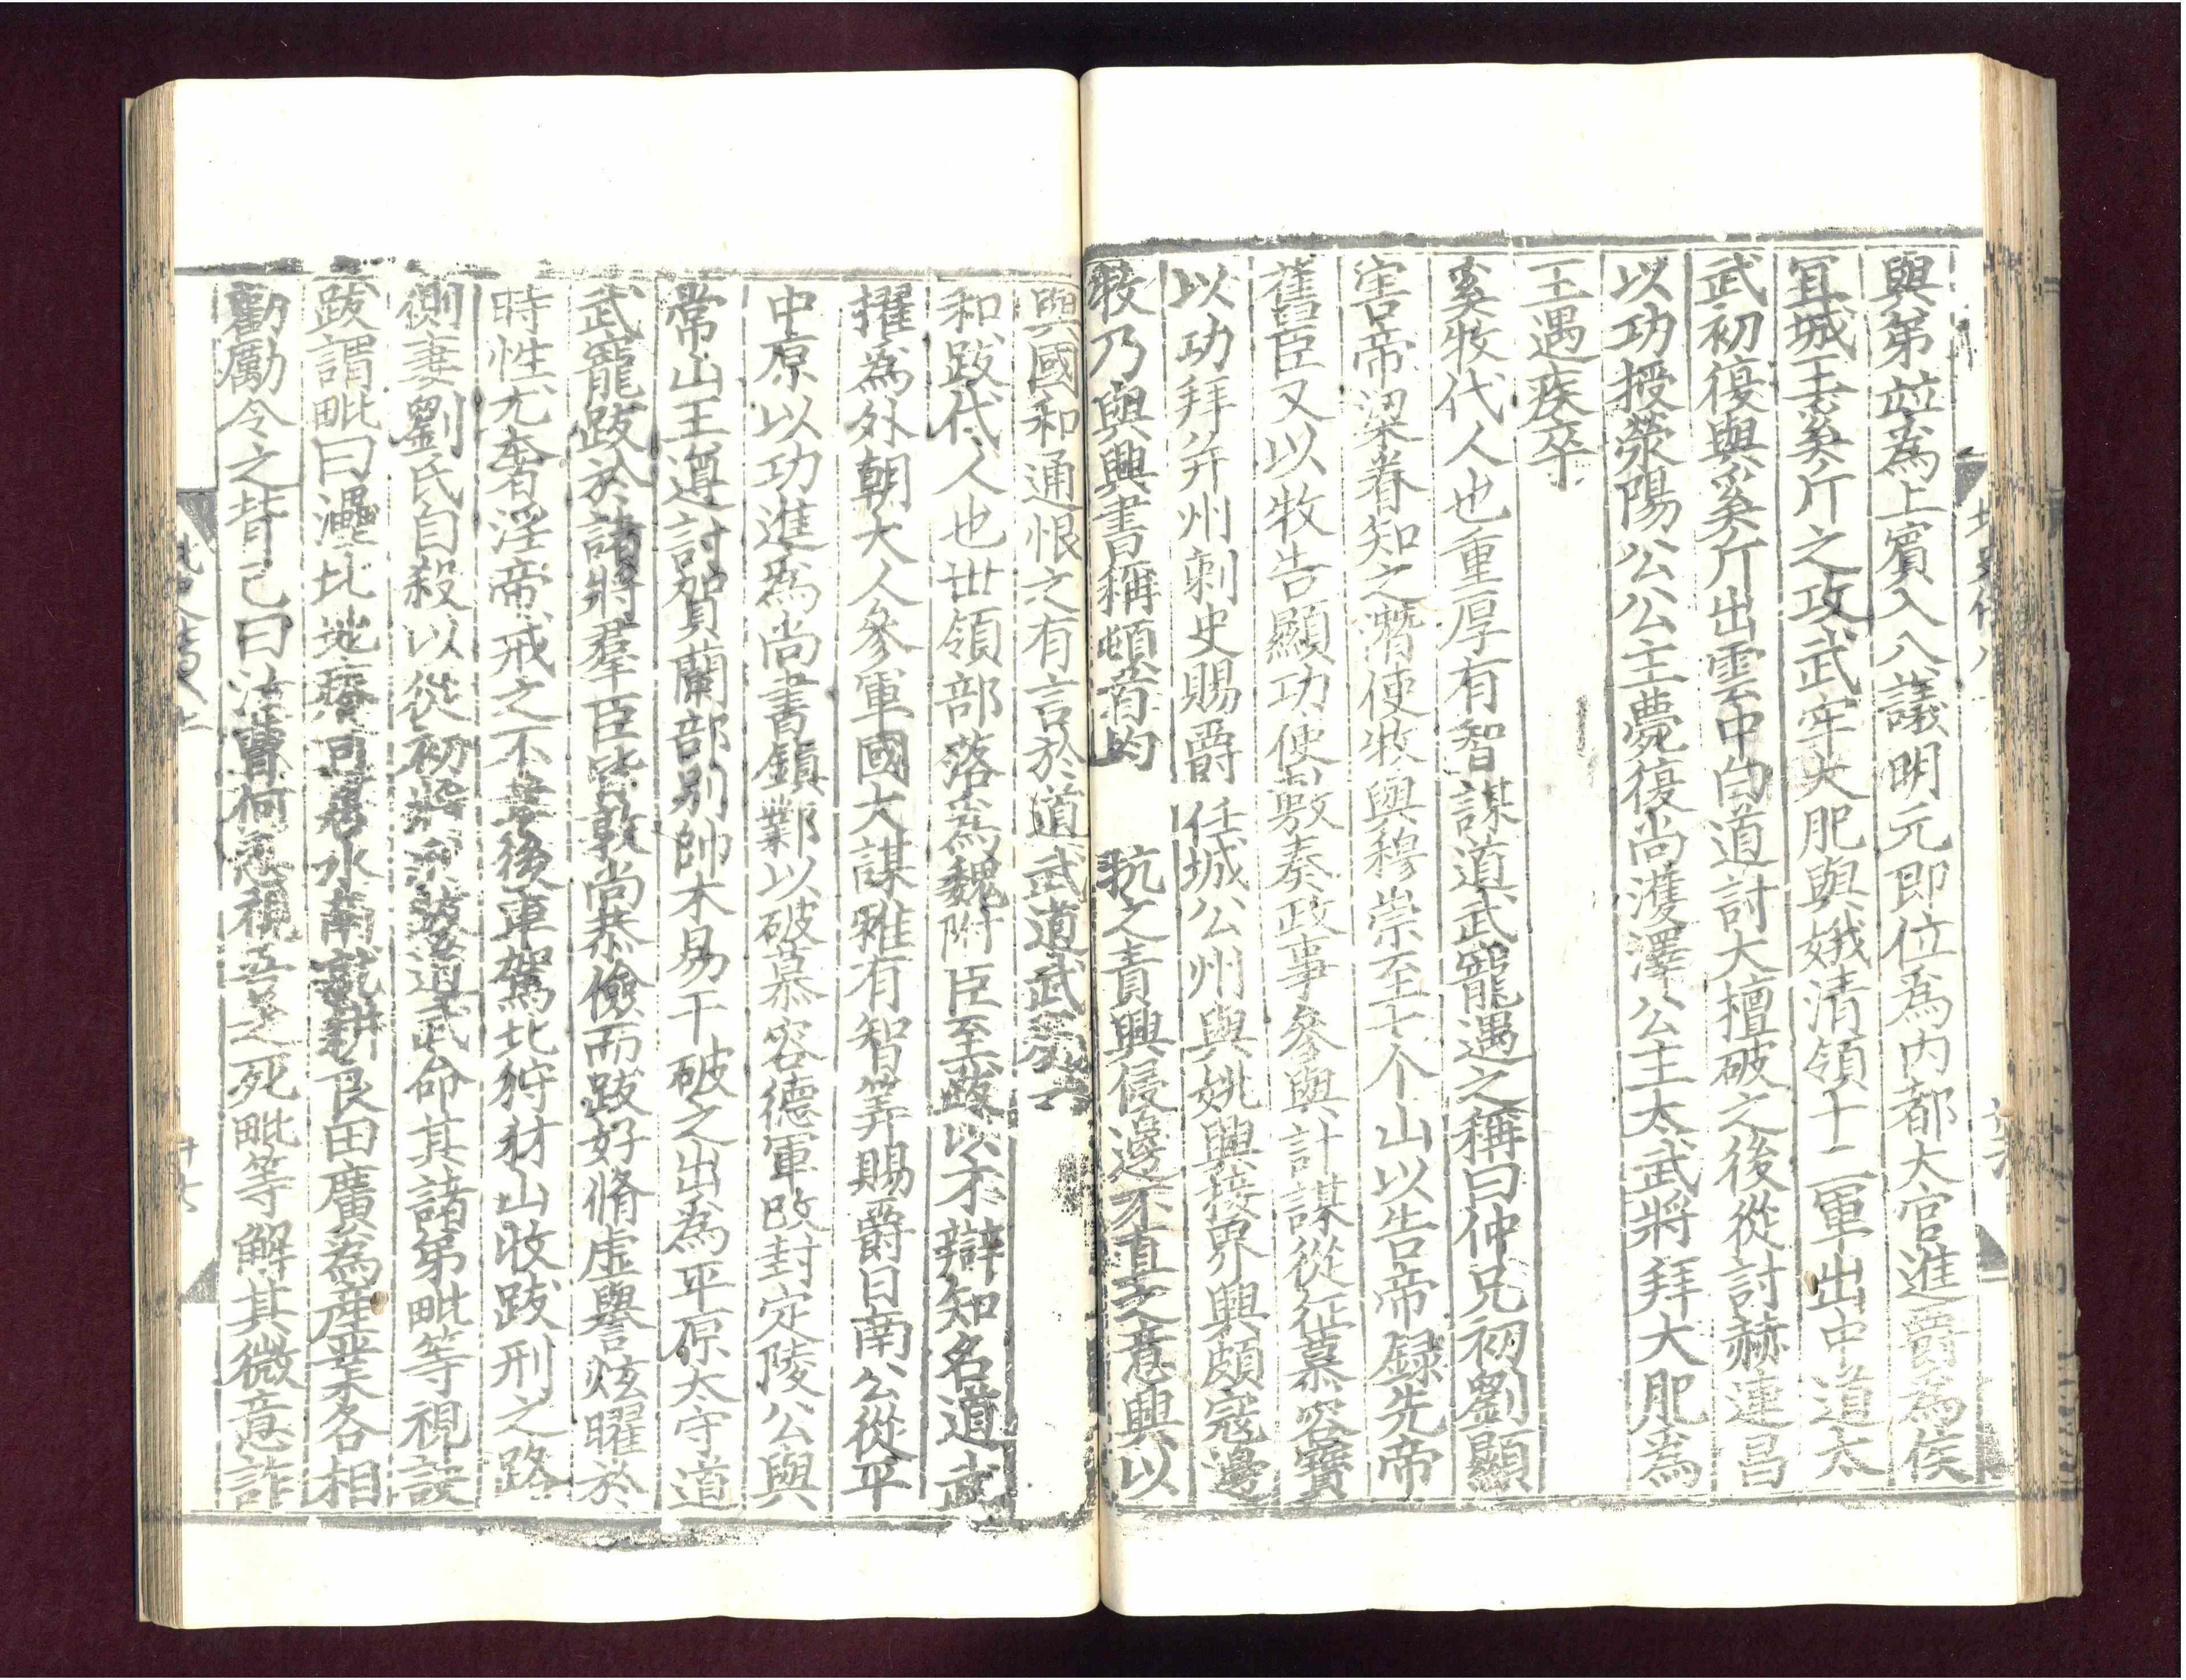 與弟並為上賓入八議明元即位為内都大官進爵為侯
宜城王奚斤之攻武牢大肥與娥清領十二軍出中道太
武初復與奚斤出雲中白道討大檀破之後從討赫連昌
以功授滎陽公公主薨復尚濩澤公主太武將拜大肥為
王遇疾卒
奚牧代人也重厚有智謀道武寵遇之稱曰仲兄初劉顯
害帝梁眷知之潛使牧與穆崇至七个山以告帝録先帝
舊臣又以牧告顯功使敷奏政事參與計謀從征慕容寶
以功拜并州刺史賜爵任城公州與姚興接界興頗寇邊
牧乃與興書稱頓首均抗之責興侵邊不直之意興以
與國和通恨之有言於道武道武
和跋代人也世領部落為魏附臣至跋以才辯知名道武
擢為外朝大人參軍國大謀雅有智筭賜爵日南公從平
中原以功進為尚書鎮鄴以破慕容德軍改封定陵公與
常山王遵討賀蘭部别帥木易干破之出為平原太守道
武寵跋於諸將羣臣皆敦尚恭儉而跋好脩虚譽炫曜於
時性尤奢淫帝戒之不後車駕北狩豺山收跋刑之路
側妻劉氏自殺以從初將刑跋道武命其諸弟毗等視訣
跋謂毗曰㶟北地瘠可居水南就耕良田廣為産業各相
勸勵令之背己曰汝曹何忍視吾之死毗等解其微意詐